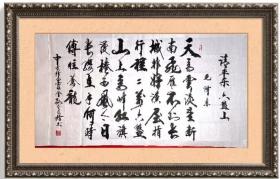 清平乐 六盘山
毛泽东
天高雲淡望断
南飛雁不到长
城非好漢屈指
行程二万六盘
山上高峰红旗
漫捲西風今日
长缨在手何时
缚住苍龍